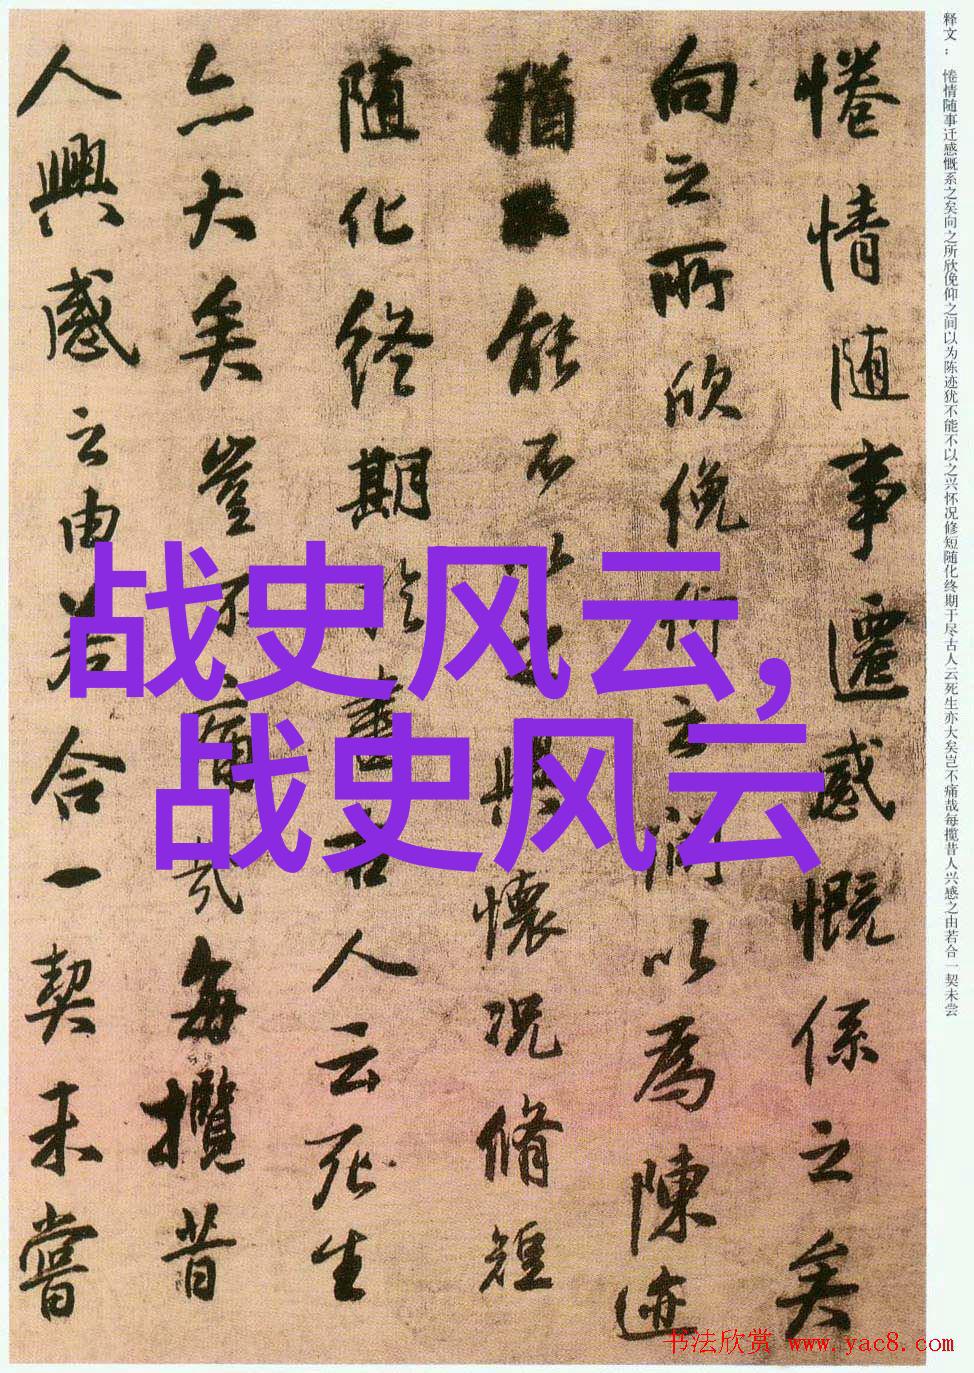 释文：倦情随事迁感慨系之矣向之所欣俛仰之间以为陈迹犹不能不以之兴怀况修短随化终期于尽古人云死生亦大矣岂不痛哉每揽昔人兴感之由若合一契未尝
惓情随事遷感慨係之矣
向之所欣俛仰之间以為陳迹
猶不能不以之興懷况脩短
随化終期於盡古人云死生
亦大矣豈不痛哉每攬昔
人興感之由若合一契未嘗
战史风云,
战史风云
书法欣赏 www.yac8.com